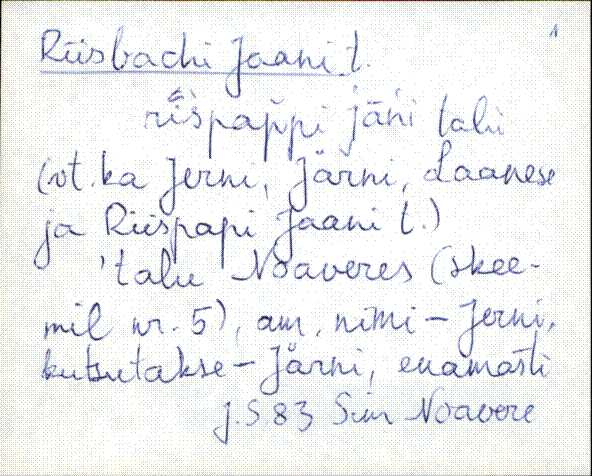 1
Riisbachi Jaani t.
rīspappi jāni talu
(vt. ka Jerni, Järni, Laanese
ja Riispapi Jaani t.)
'talu Noaveres (skee-
mil nr. 5), am. nimi - Jerni,
kutsutakse - Järni, enamasti
J.S 83 Sim Noavere